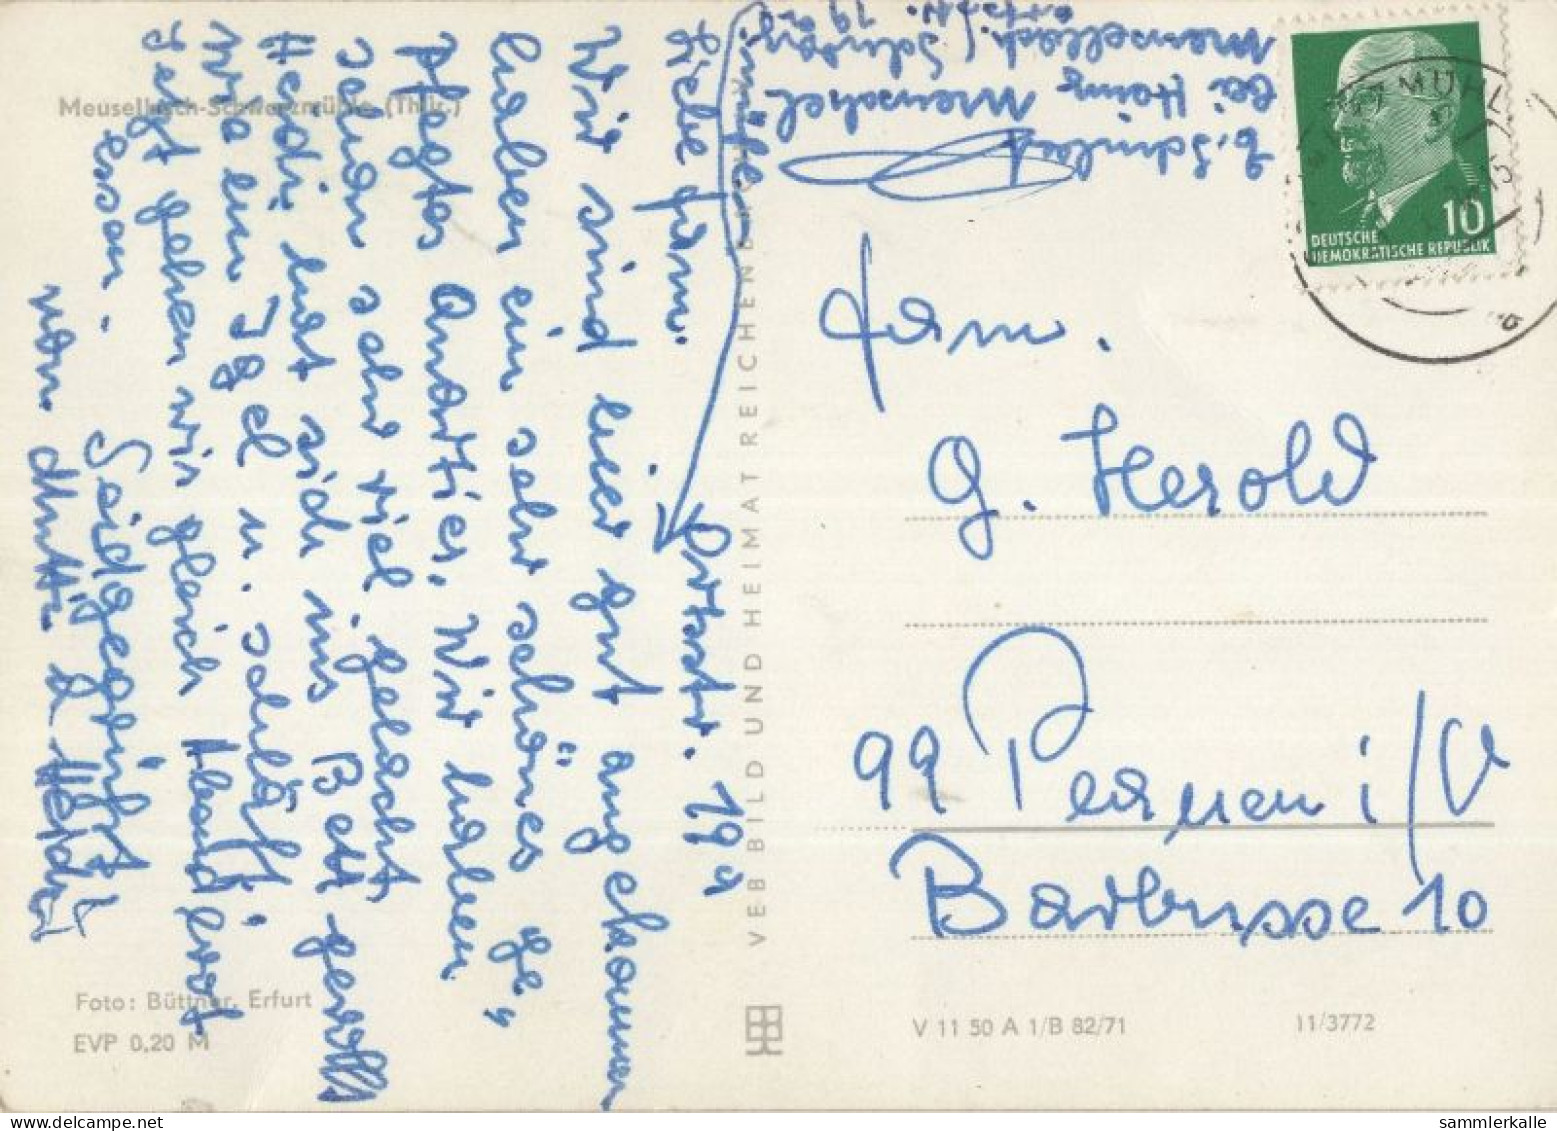 Meuselbach-Schwarzmühle (Thür.)
Liebe Fam.
Wir sind hier gut angekommen
haben ein sehr schönes ge„
pflegtes Quartier. Wir haben
schon sehr viel gelacht
Heidi hat sich ins Bett gerollt
wie ein Igel u. schläft.
Jetzt gehen wir gleich Abendbrot
essen.
Seid gegrüßt
von Mutti & Heidi
Ortsstr. 19a
bei Heinz
Meuselbach
Ortsstr. 19a
DEUTSCHE
DEMOKRATISCHE REPUBLIK
10
Fam.
G. Herold
99 Plauen i/V
Barbusse 10
VEB BILD UND HEIMAT REICHENBACH
Foto: Büttner, Erfurt
EVP 0,20 M
V 11 50 A 1/B 82/71
11/3772
sammlerkalle